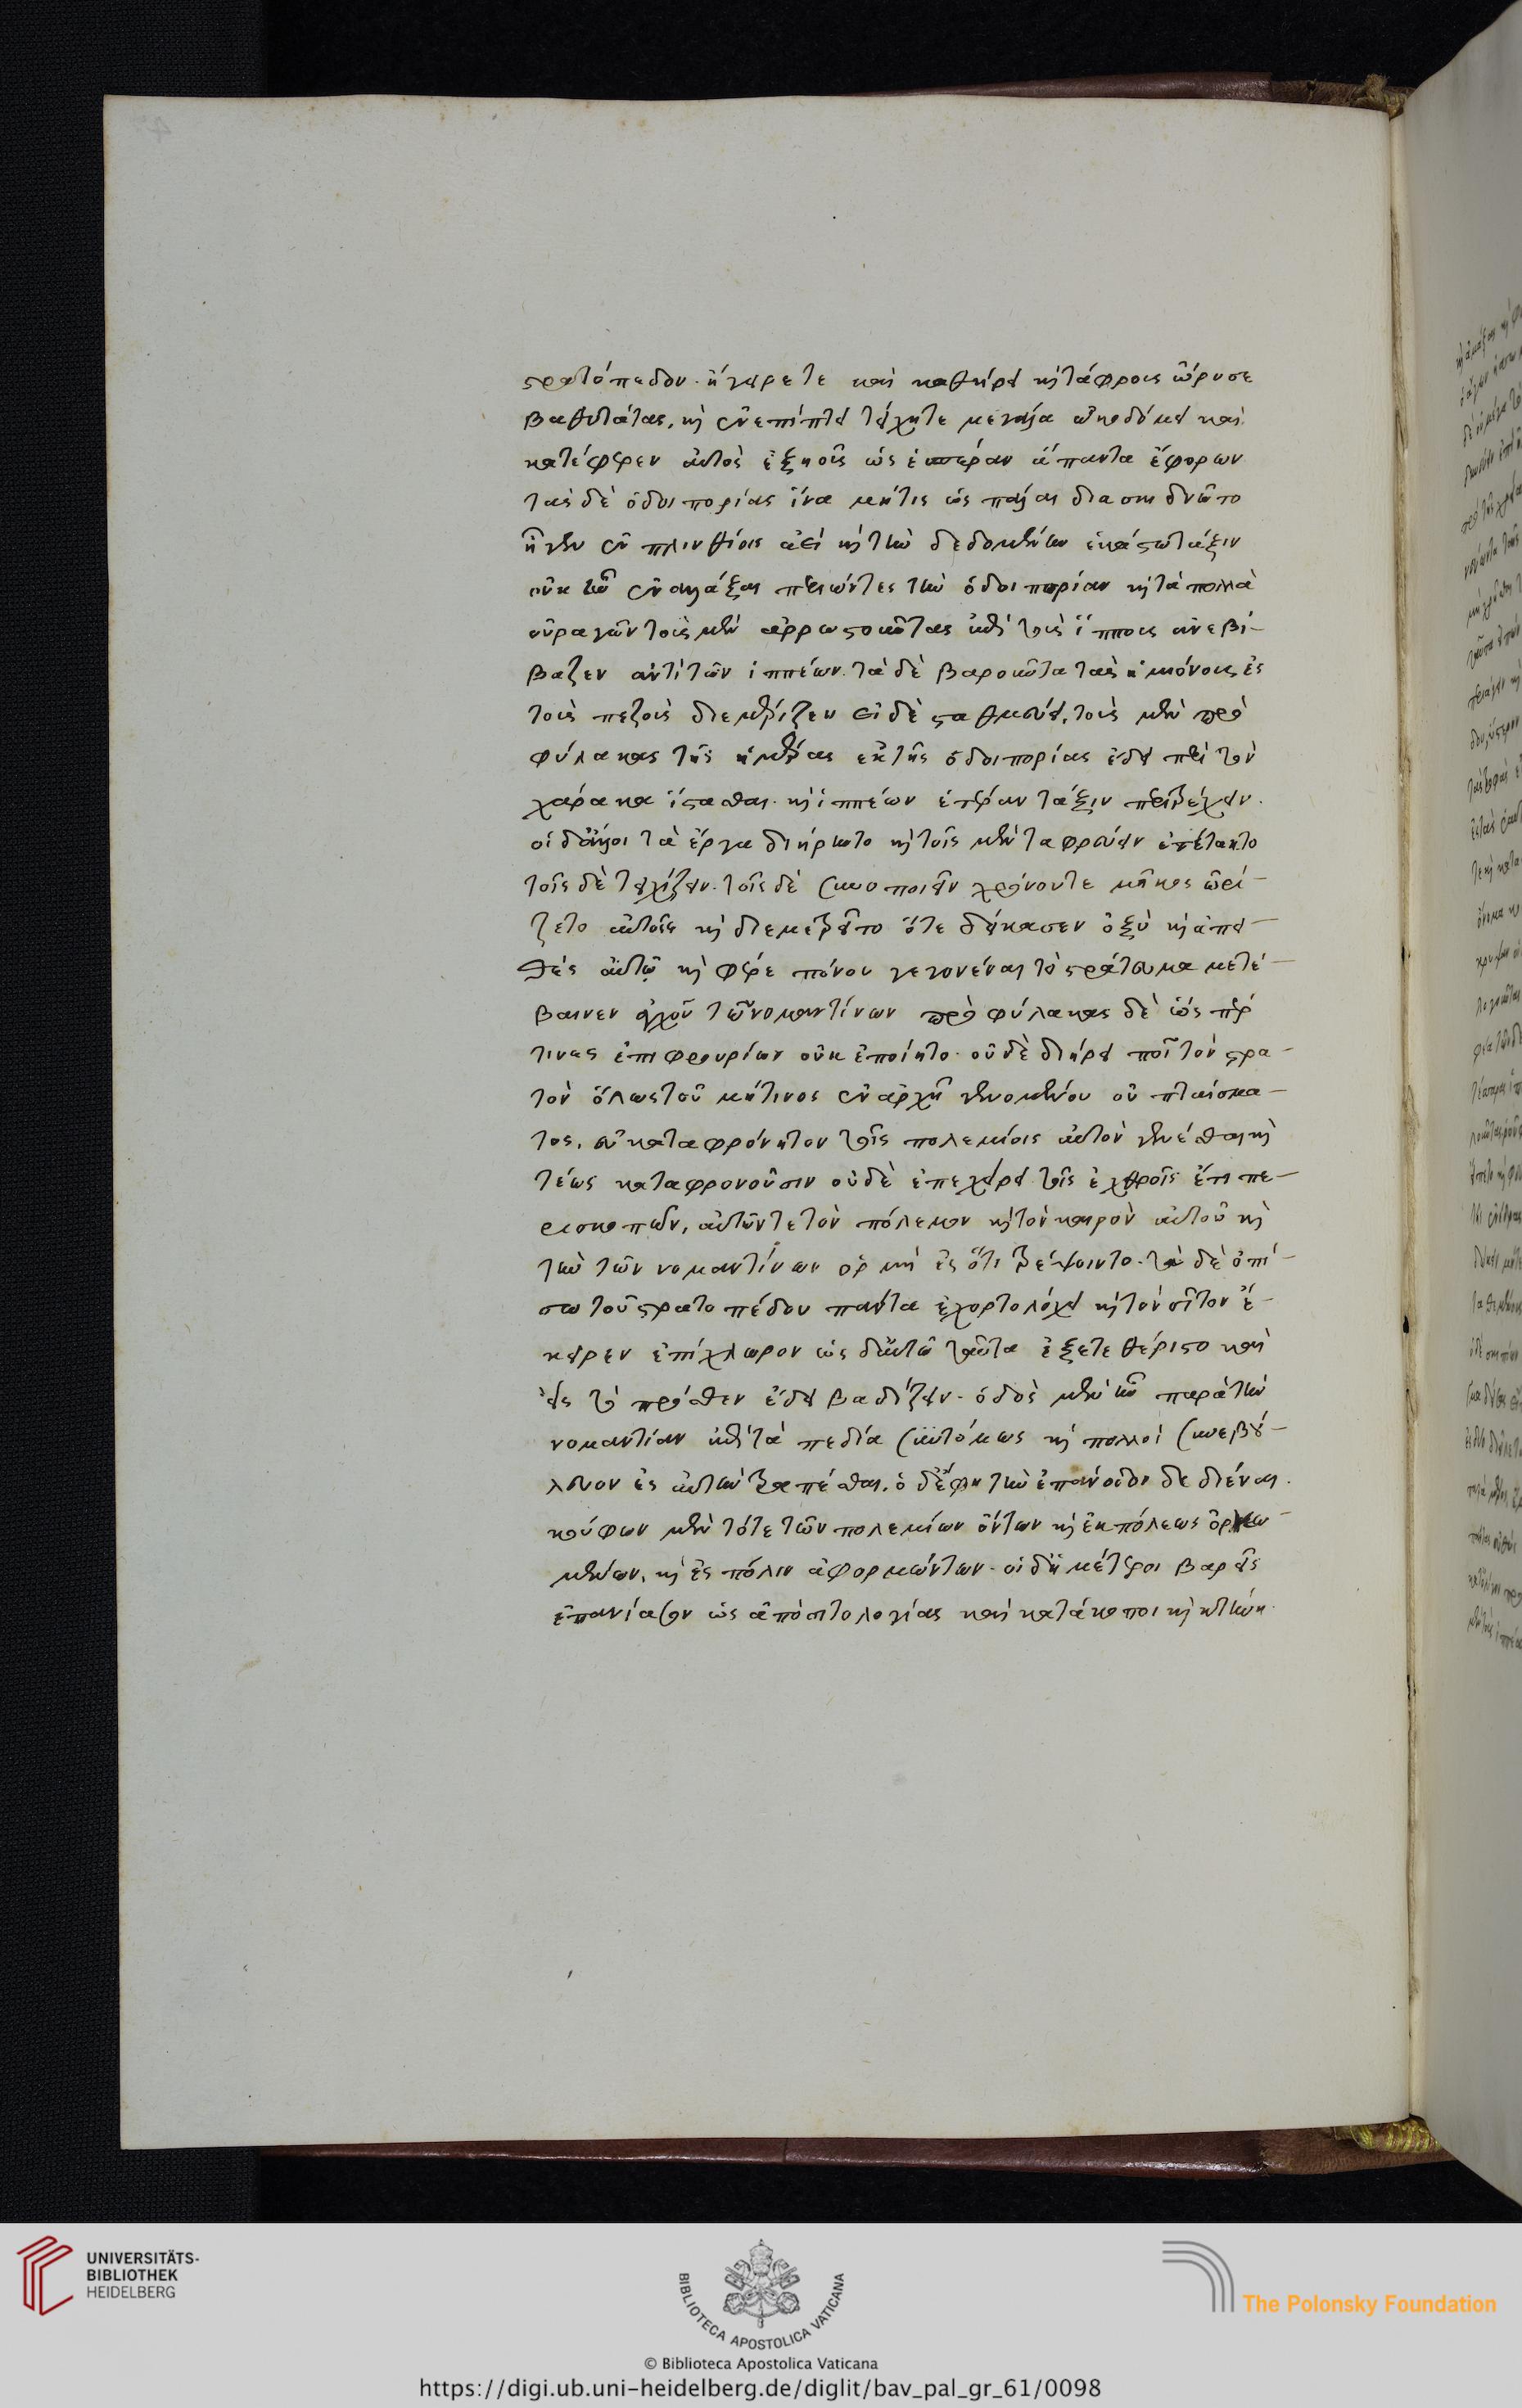 στρατόπεδον. ἤγειρέ τε καὶ καθήρει καὶ τάφρους ὤρυσε
βαθυτάτας, καὶ ἐνεπίπλα τείχη τε μεγάλα ᾠκοδόμει καὶ
κατέφερεν αὐτὸς ἐξ ἠοῦς ὡς ἑσπέραν ἅπαντα ἔφορων
τὰς δὲ ὁδοιπορίας ἵνα μήτις ὡς πάλαι διασκιδνῷτο
ἦγεν ἐν πλινθίοις ἀεὶ καὶ τὴν δεδομένην ἑκάστω τάξιν
οὐκ ἦν ἐναλλάξαι περιιὼντες τὴν ὁδοιπορίαν καὶ τὰ πολλὰ
οὐραγῶν τοὺς μὲν ἀρρωστοῦντας ἐπὶ τοὺς ἵππους ἀνεβί-
βαζεν ἀντὶ τῶν ἱππέων. τὰ δὲ βαροῦντα τὰς ἡμιόνους ἐς
τοὺς πεζοὺς διεμέριζεν εἰ δὲ σταθμεύει, τοὺς μὲν προ
φύλακας τῆς ἡμέρας ἐκ τῆς ὁδοιπορίας ἔδει περὶ τὸν
χάρακα ἵστασθαι. καὶ ἱππέων ἑτέραν τάξιν περιτρέχειν.
οἱ δ' ἄλλοι τὰ ἔργα διήρηντο καὶ τοῖς μὲν ταφρεύειν ἐπέτακτο
τοῖς δὲ τειχίζειν. τοῖς δὲ σκηνοποιεῖν χρόνου τε μῆκος ὡρί-
ζετο αὐτοῖς καὶ διεμετρεῖτο ὅτε δ' εἴκασεν ὀξὺ καὶ ἀπει-
θὲς αὐτῷ καὶ φερέπονον γεγονέναι τὸ στράτευμα μετέ-
βαινεν ἀγχοῦ τῶν νομαντίνων προφύλακας δὲ ὥς πέρ
τινες ἐπὶ φρουρίων οὐκ ἐποίητο. οὐδὲ διῄρει ποῖ τὸν στρα-
τὸν ὅλως τοῦ μή τινος ἐν ἀρχῇ γενομένου οὐ πταίσμα-
τος, εὐκαταφρόνητον τοῖς πολεμίοις αὐτὸν γενέσθαι καὶ
τέως καταφρονοῦσιν οὐδὲ ἐπεχείρει τοῖς ἐχθροῖς ἔτι πε-
ρισκοπῶν, αὐτῶν τε τὸν πόλεμον καὶ τὸν καιρὸν αὐτοῦ καὶ
τὴν τῶν νομαντίνων ὁρμὴν ἐς ὅτι τρέψοιντο. τὰ δὲ ὀπί-
σω τοῦ στρατοπέδου πάντα ἐχορτολόγει καὶ τὸν σῖτον ἔ-
κειρεν ἐπίχλωρον ὡς δ' αὐτῷ ταῦτα ἐξετεθέριστο καὶ
ἐς τὸ πρόσθεν ἔδει βαδίζειν. ὁδὸς μὲν ἦν παρὰ τὴν
νομαντίαν ἐπὶ τὰ πεδία σύντομος καὶ πολλοὶ συνεβού-
λευον ἐς αὐτὴν τραπέσθαι. ὁ δ' ἔφη τὴν ἐπάνοδον δεδιέναι.
κούφων μὲν τότε τῶν πολεμίων ὄντων καὶ ἐκ πόλεως ὁρμω-
μένων, καὶ ἐς πόλιν ἀφορμώντων. οἱ δ' ἡμέτεροι βαρεῖς
ἐπανίασιν ὡς ἀπὸ σιτολογίας καὶ κατάκοποι καὶ κτήνη.
UNIVERSITÄTS-
BIBLIOTHEK
HEIDELBERG
BIBLIOTECA APOSTOLICA VATICANA
The Polonsky Foundation
© Biblioteca Apostolica Vaticana
https://digi.ub.uni-heidelberg.de/diglit/bav_pal_gr_61/0098